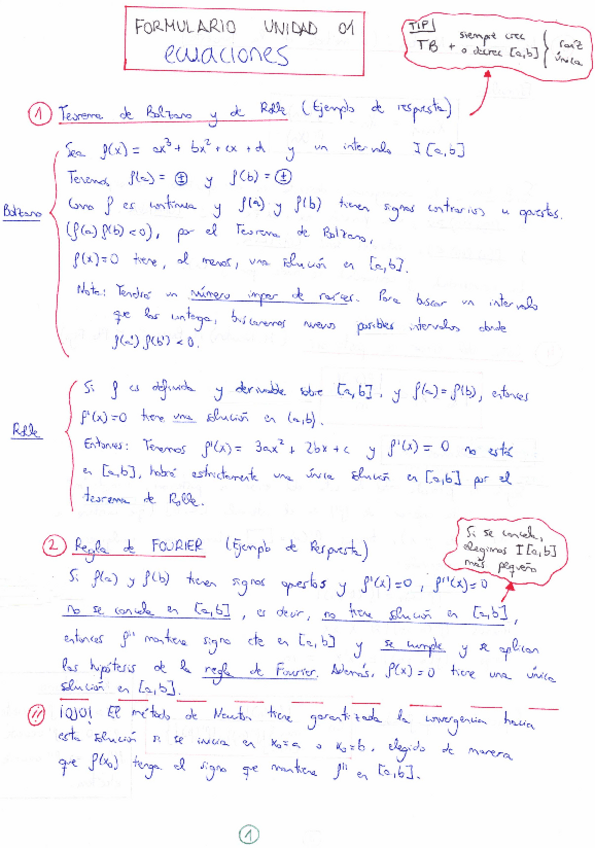 FORMULARIO UNIDAD 01
ecuaciones
TIP!
TB + siempre crec o decrec [a,b] { raíz única
① Teorema de Bolzano y de Rolle (Ejemplo de respuesta)
Bolzano
Sea f(x) = ax³ + bx² + cx + d y un intervalo I [a,b]
Tenemos f(a) = ± y f(b) = ±
Como f es continua y f(a) y f(b) tienen signos contrarios u opuestos.
(f(a) f(b) < 0), por el Teorema de Bolzano,
f(x) = 0 tiene, al menos, una solución en [a,b].
Nota: Tendrás un número impar de raíces. Para buscar un intervalo
que las contenga, buscaremos nuevos posibles intervalos donde
f(a') f(b') < 0.
Rolle
Si f es definida y derivable sobre [a,b], y f(a) = f(b), entonces
f'(x) = 0 tiene una solución en (a,b).
Entonces: Tenemos f'(x) = 3ax² + 2bx + c y f'(x) = 0 no está
en [a,b], habrá estrictamente una única solución en [a,b] por el
teorema de Rolle.
② Regla de FOURIER (Ejemplo de Respuesta)
Si se cancela,
elegimos I [a,b]
más pequeño
Si f(a) y f(b) tienen signos opuestos y f'(x) = 0, f''(x) = 0
no se cancela en [a,b], es decir, no tiene solución en [a,b],
entonces f'' mantiene signo cte en [a,b] y se cumple y se aplican
las hipótesis de la regla de Fourier. Además, f(x) = 0 tiene una única
solución en [a,b].
!! ¡OJO! El método de Newton tiene garantizada la convergencia hacia
esta solución si se inicia en x₀ = a o x₀ = b, elegido de manera
que f(x₀) tenga el signo que mantiene f'' en [a,b].
1